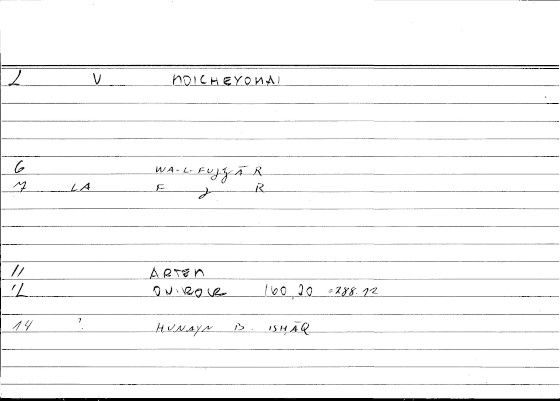 L V NOICHEYONAI
6 WA-L-FUǧǧĀR
7 LA F ǧ R
11 ARTEN
12 160,20 =288.12
14 ? HUNAYN B. ISHĀQ